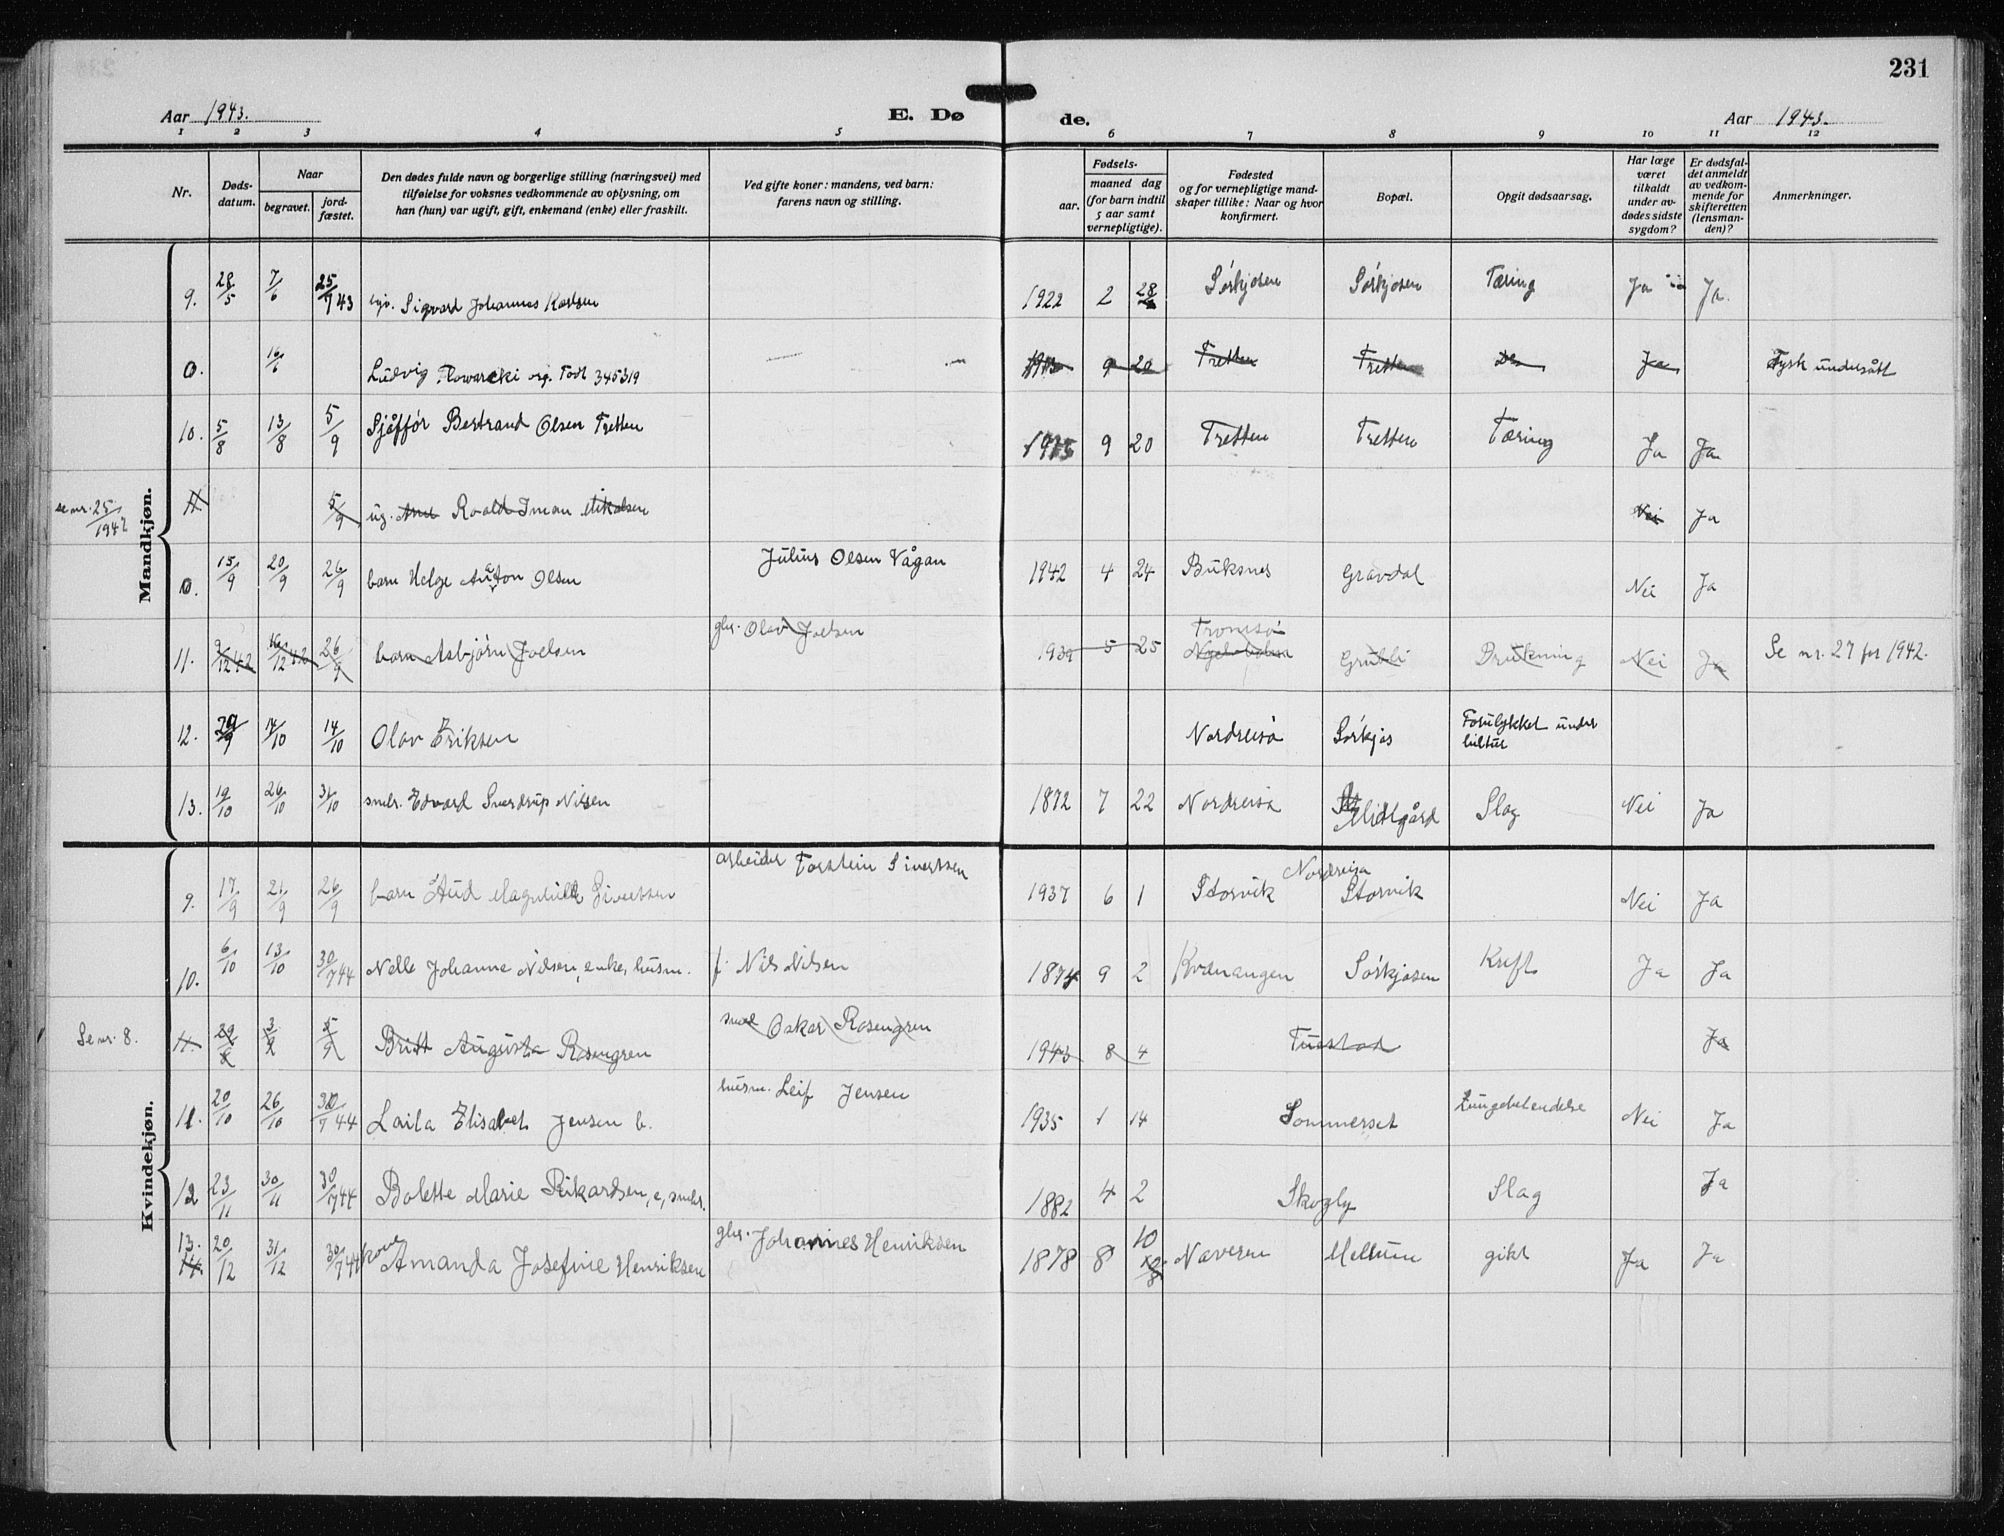 231
Aar 1943.
E. Dø
de.
Aar 1943.
1 2 3 4 5 6 7 8 9 10 11 12
Nr.
Døds-
datum.
Naar
begravet.
jord-
fæstet.
Den dødes fulde navn og borgerlige stilling (næringsvei) med
tilføielse for voksnes vedkommende av oplysning, om
han (hun) var ugift, gift, enkemand (enke) eller fraskilt.
Ved gifte koner: mandens, ved barn:
farens navn og stilling.
Fødsels-
aar.
maaned dag
(for barn indtil
5 aar samt
vernepligtige).
Fødested
og for vernepligtige mand-
skaper tillike: Naar og hvor
konfirmert.
Bopæl.
Opgit dødsaarsag.
Har læge
været
tilkaldt
under av-
dødes sidste
sygdom?
Er dødsfal-
det anmeldt
av vedkom-
mende for
skifteretten
(lensman-
den)?
Anmerkninger.
Mandkjøn.
9. 28/5 7/6 25/7 43 Sigvard Johannes Karlsen 1922 2 28 Sørkjosen Sørkjosen Tæring Ja Ja.
0. 16/6 Ludvig org. Todt 345319 9 20 Tretten Tretten Ja Tysk undersått
10. 5/8 13/8 5/9 Sjåffør Bertrand Olsen Tretten 1915 9 20 Tretten Tretten Tæring Ja Ja
se nr. 25/1942 11 5/9 ug. Roald Iman Mikalsen Nei Ja
0. 15/9 20/9 26/9 barn Helge Anton Olsen Julius Olsen Vågan 1942 4 24 Buksnes Gravdal Nei Ja
11. 9/12 42 16/12 42 26/9 barn Asbjørn Joelsen gbr. Olav Joelsen 1939 5 25 Tromsø Grubli Drukning Nei Ja Se nr. 27 for 1942.
12. 29/9 14/10 14/10 Olav Eriksen Nordreisa Sørkjos Forulykket under
biltur
13. 19/10 26/10 31/10 småbr. Edvard Sverdrup Nilsen 1872 7 22 Nordreisa Midtgård Slag Nei Ja
Kvindekjøn.
9. 17/9 21/9 26/9 barn Aud Magnhild Sivertsen arbeider Torstein Sivertsen 1937 6 1 Storvik Nordreisa Storvik Nei Ja
10. 6/10 13/10 30/7 44 Nelle Johanne Nilsen, enke, husm. f. Nils Nilsen 1874 9 2 Kvænangen Sørkjosen Kreft Ja Ja
Se nr. 8. 11. 29/8 3/9 5/9 Britt Augusta Rosengren Oskar Rosengren 1943 8 4 Ja
11. 20/10 26/10 30/7 44 Laila Elisabet Jensen b. husm. Leif Jensen 1935 1 14 Sommerset Lungebetendelse Nei Ja
12 23/11 30/11 30/7 44 Bolette Marie Rikardsen, e, småbr. 1882 4 2 Skogly Slag Ja
13. 14. 20/12 31/12 30/7 44 kone Amanda Josefine Henriksen gbr. Johannes Henriksen 1878 8 10 Naveren gikt Ja Ja